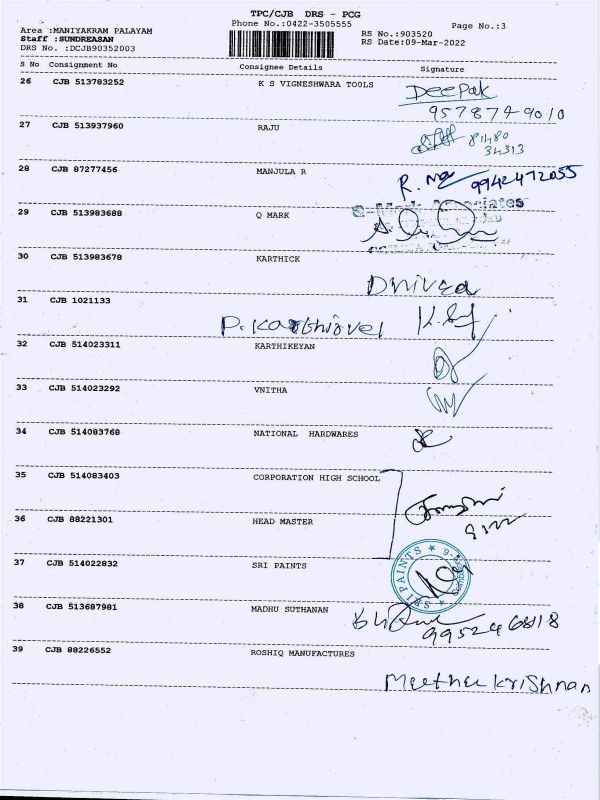 TPC/CJB DRS - PCG
Phone No.:0422-3505555
Page No.:3
Area :MANIYAKRAM PALAYAM
Staff :SUNDREASAN
DRS No. :DCJB90352003
RS No.:903520
RS Date:09-Mar-2022
S No Consignment No Consignee Details Signature
26 CJB 513783252 K S VIGNESHWARA TOOLS
Deepak
9578749010
27 CJB 513937960 RAJU
81480
34313
28 CJB 87277456 MANJULA R
R. 9942472055
29 CJB 513983688 Q MARK
30 CJB 513983678 KARTHICK
31 CJB 1021133
P. Karthivel
32 CJB 514023311 KARTHIKEYAN
33 CJB 514023292 VNITHA
34 CJB 514083768 NATIONAL HARDWARES
35 CJB 514083403 CORPORATION HIGH SCHOOL
36 CJB 88221301 HEAD MASTER
37 CJB 514022832 SRI PAINTS
SRI PAINTS
38 CJB 513687981 MADHU SUTHANAN
9952468118
39 CJB 88226552 ROSHIQ MANUFACTURES